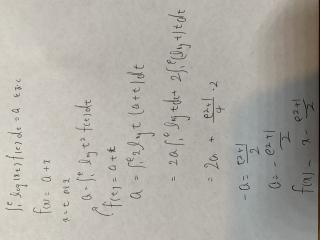 ∫₁ᵉ log(xt) f(t) dt = a
f(x) = a + x
a = ∫₁ᵉ log t² f(t) dt
f(t) = a + t
a = ∫₁ᵉ 2 log t (a+t) dt
= 2a ∫₁ᵉ log t dt + 2∫₁ᵉ (log t) t dt
= 2a + (e²+1)/4 · 2
-a = (e²+1)/2
a = - (e²+1)/2
f(x) = x - (e²+1)/2